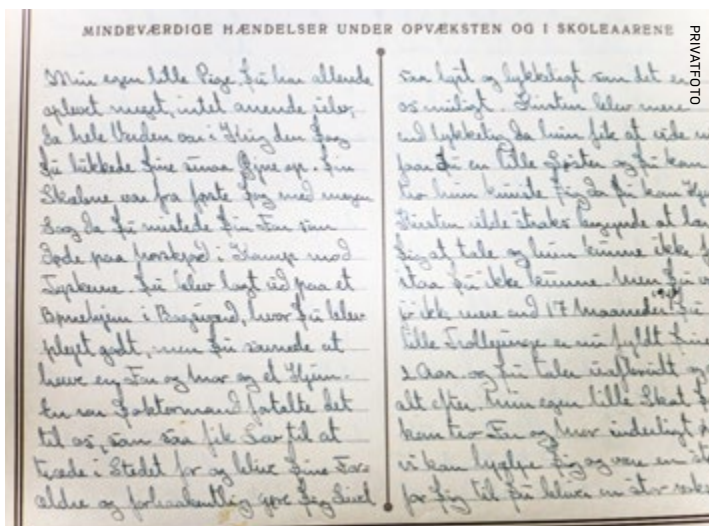 MINDEVÆRDIGE HÆNDELSER UNDER OPVÆKSTEN OG I SKOLEAARENE
PRIVATFOTO
Min egen lille Pige. Du har allerede
oplevet meget, intet anende selv,
da hele Verden var i Krig den Dag
Du lukkede Dine smaa Øjne op. Din
Skæbne var fra første Dag med megen
Sorg da Du mistede Din Far som
døde paa i Kamp mod
Tyskerne. Du blev lagt ud paa et
Børnehjem i Bagsværd, hvor Du blev
plejet godt, men Du savnede at
have en Far og Mor og et Hjem.
En sød Doktormand fortalte det
til os, som saa fik Lov til at
træde i Stedet for og blive Dine For-
ældre og forhaabentlig gøre Dig Livet
saa lyst og lykkeligt som det er
os muligt. Kirsten blev mere
end lykkelig da hun fik at vide
Du en lille Søster og Du kan
tro hun kyssede Dig da Du kom
Kirsten vilde straks begynde at
Dig at tale og hun kunne ikke
staa Du ikke kunne. Men Du
jo ikke mere end 17 Maaneder. Du
lille Trolleunge er nu fyldt Dine
2 Aar og Du taler uafbrudt og
alt efter. Min egen lille Skat
kan tro Far og Mor inderligt
vi kan hjælpe Dig og være en
for Dig til Du bliver en stor